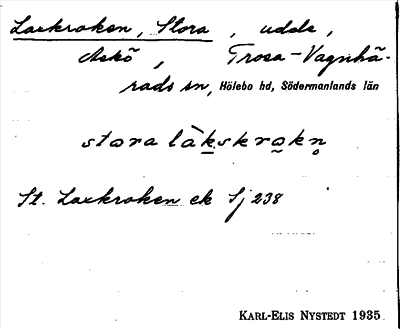 Laxkroken, Stora, udde,
Askö, Trosa-Vagnhä-
rads sn, Hölebo hd, Södermanlands län
stora làkskrokn̥
St. Laxkroken ek Sj 238
KARL-ELIS NYSTEDT 1935